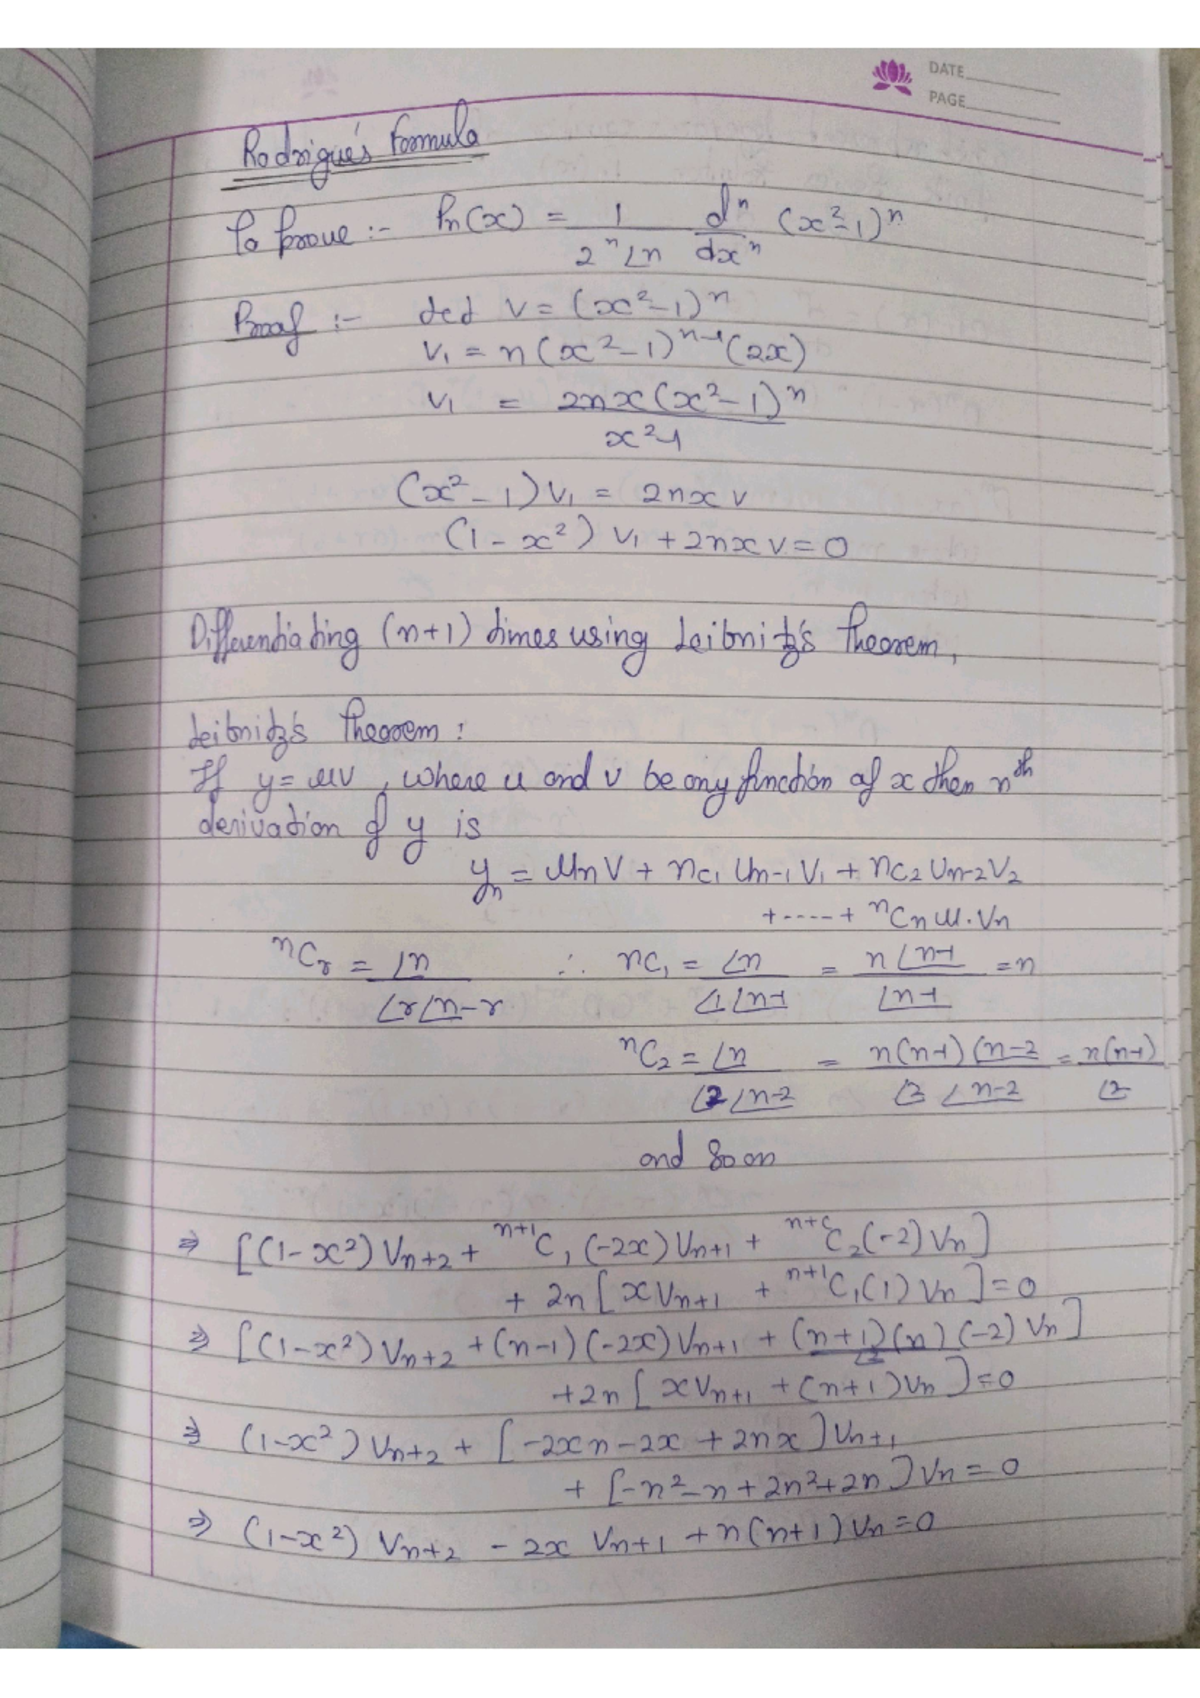 DATE
PAGE
Rodrigue's Formula
To prove :- Pn(x) = 1/(2^n ∠n) d^n/dx^n (x²-1)^n
Proof :- Let v = (x²-1)^n
v₁ = n(x²-1)^(n-1) (2x)
v₁ = 2nx(x²-1)^n / x²-1
(x²-1)v₁ = 2nxv
(1-x²) v₁ + 2nxv = 0
Differentiating (n+1) times using Leibnitz's Theorem,
Leibnitz's Theorem :
If y = uv, where u and v be any function of x then n^th
derivation of y is
y_n = u_n v + nC₁ u_(n-1) v₁ + nC₂ u_(n-2) v₂
+ ---- + ^nC_n u.v_n
^nC_r = ∠n / ∠r∠n-r ∴ nC₁ = ∠n / ∠1∠n-1 = n∠n-1 / ∠n-1 = n
^nC₂ = ∠n / ∠2∠n-2 = n(n-1)(n-2 / ∠2 ∠n-2 = n(n-1) / ∠2
and so on
⇒ [(1-x²) V_(n+2) + ^(n+1)C₁ (-2x) V_(n+1) + ^(n+C)C₂ (-2) V_n]
+ 2n [x V_(n+1) + ^(n+1)C₁ (1) V_n] = 0
⇒ [(1-x²) V_(n+2) + (n-1)(-2x) V_(n+1) + (n+1)(n)/∠2 (-2) V_n]
+ 2n [x V_(n+1) + (n+1) V_n] = 0
⇒ (1-x²) V_(n+2) + [-2xn - 2x + 2nx] V_(n+1)
+ [-n² - n + 2n² + 2n] V_n = 0
⇒ (1-x²) V_(n+2) - 2x V_(n+1) + n(n+1) V_n = 0